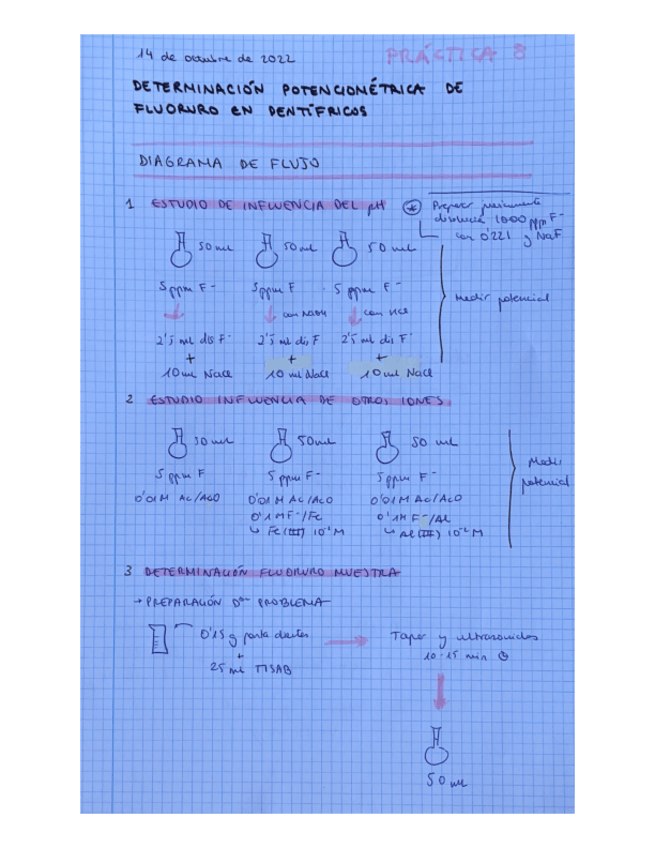 14 de octubre de 2022
PRÁCTICA 8
DETERMINACIÓN POTENCIOMÉTRICA DE
FLUORURO EN DENTÍFRICOS
DIAGRAMA DE FLUJO
1 ESTUDIO DE INFLUENCIA DEL pH
* Preparar previamente
disolución 1000 ppm F-
con 0'221 g NaF
50 ml 50 ml 50 ml
5 ppm F- 5 ppm F 5 ppm F-
con NaOH con HCl
Medir potencial
2'5 ml dis F- 2'5 ml dis F 2'5 ml dis F-
+ + +
10 ml NaCl 10 ml NaCl 10 ml NaCl
2 ESTUDIO INFLUENCIA DE OTROS IONES
50 ml 50 ml 50 ml
5 ppm F 5 ppm F- 5 ppm F-
Medir
potencial
0'01M Ac/AcO 0'01M Ac/AcO 0'01M Ac/AcO
0'1M F-/Fe 0'1M F-/Al
↳ Fe(III) 10-2 M ↳ Al(III) 10-2 M
3 DETERMINACIÓN FLUORURO MUESTRA
→ PREPARACIÓN Dón PROBLEMA
0'15 g pasta dientes
+
25 ml TISAB
Tapar y ultrasonidos
10-15 min
50 ml